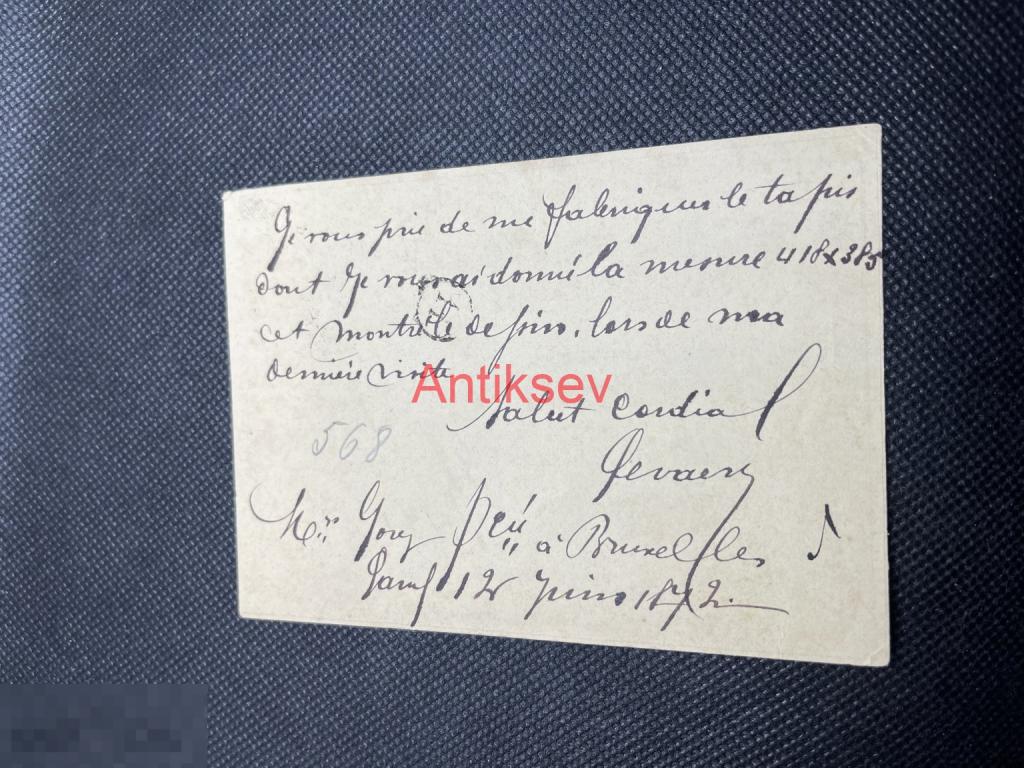 Je vous prie de me fabriquer le tapis
dont je vous ai donné la mesure 418x385
et montré le dessin, lors de ma
dernière visite
Antiksev
Salut Cordial
568
Gevaert
à Bruxelles
12 Juin 1872